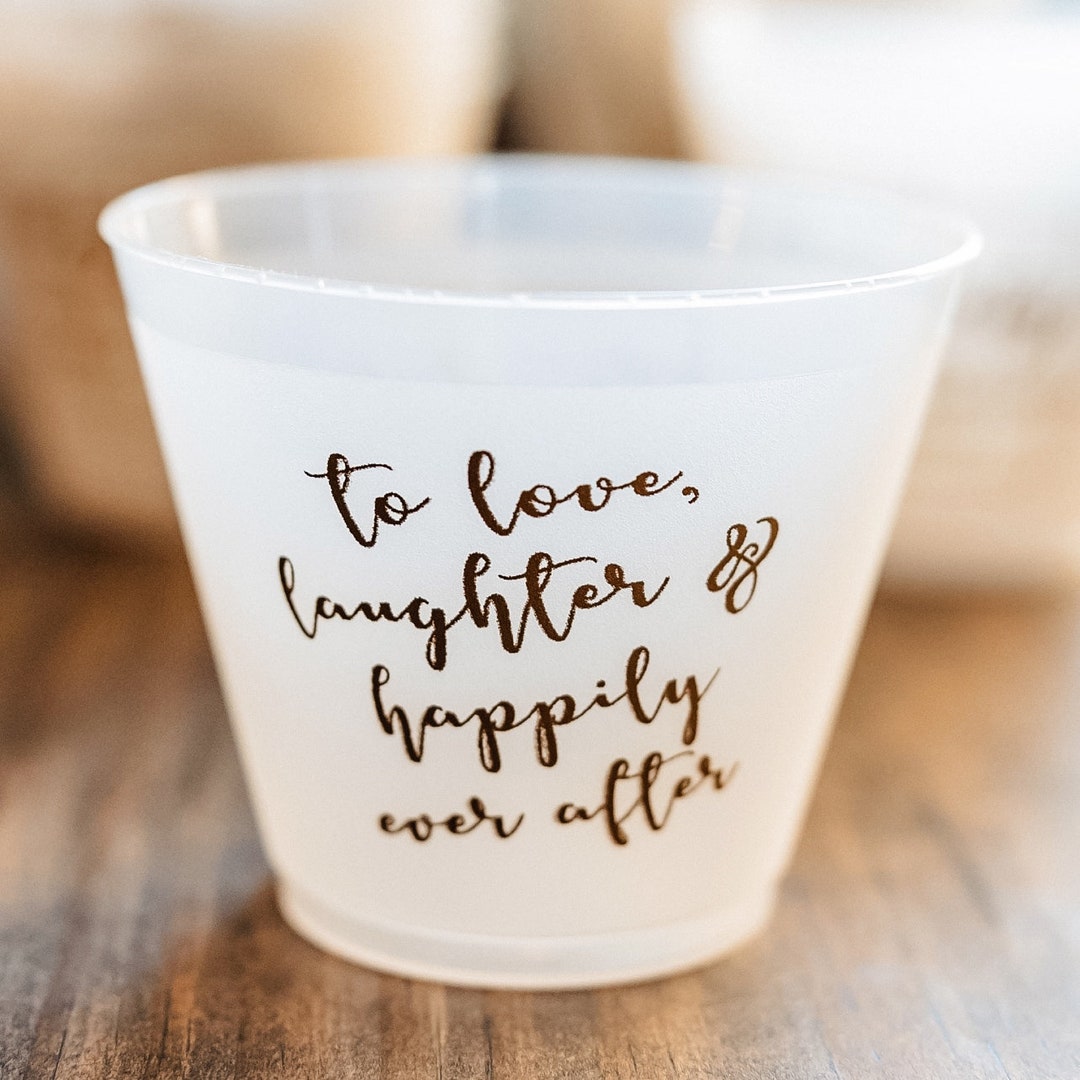 to love,
laughter &
happily
ever after